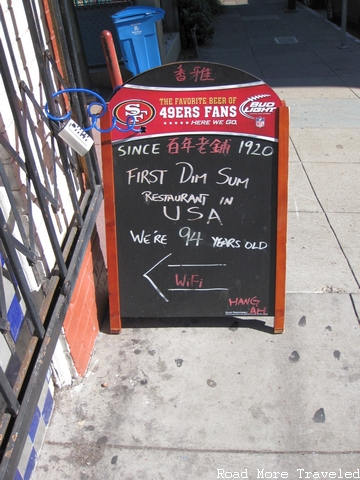 香雅
SF
THE FAVORITE BEER OF
49ERS FANS
HERE WE GO.
BUD
LIGHT
NFL
SINCE 百年老舖 1920
FIRST DIM SUM
RESTAURANT IN
USA
WE'RE 94 YEARS OLD
WiFi
HANG
AH
Road More Traveled